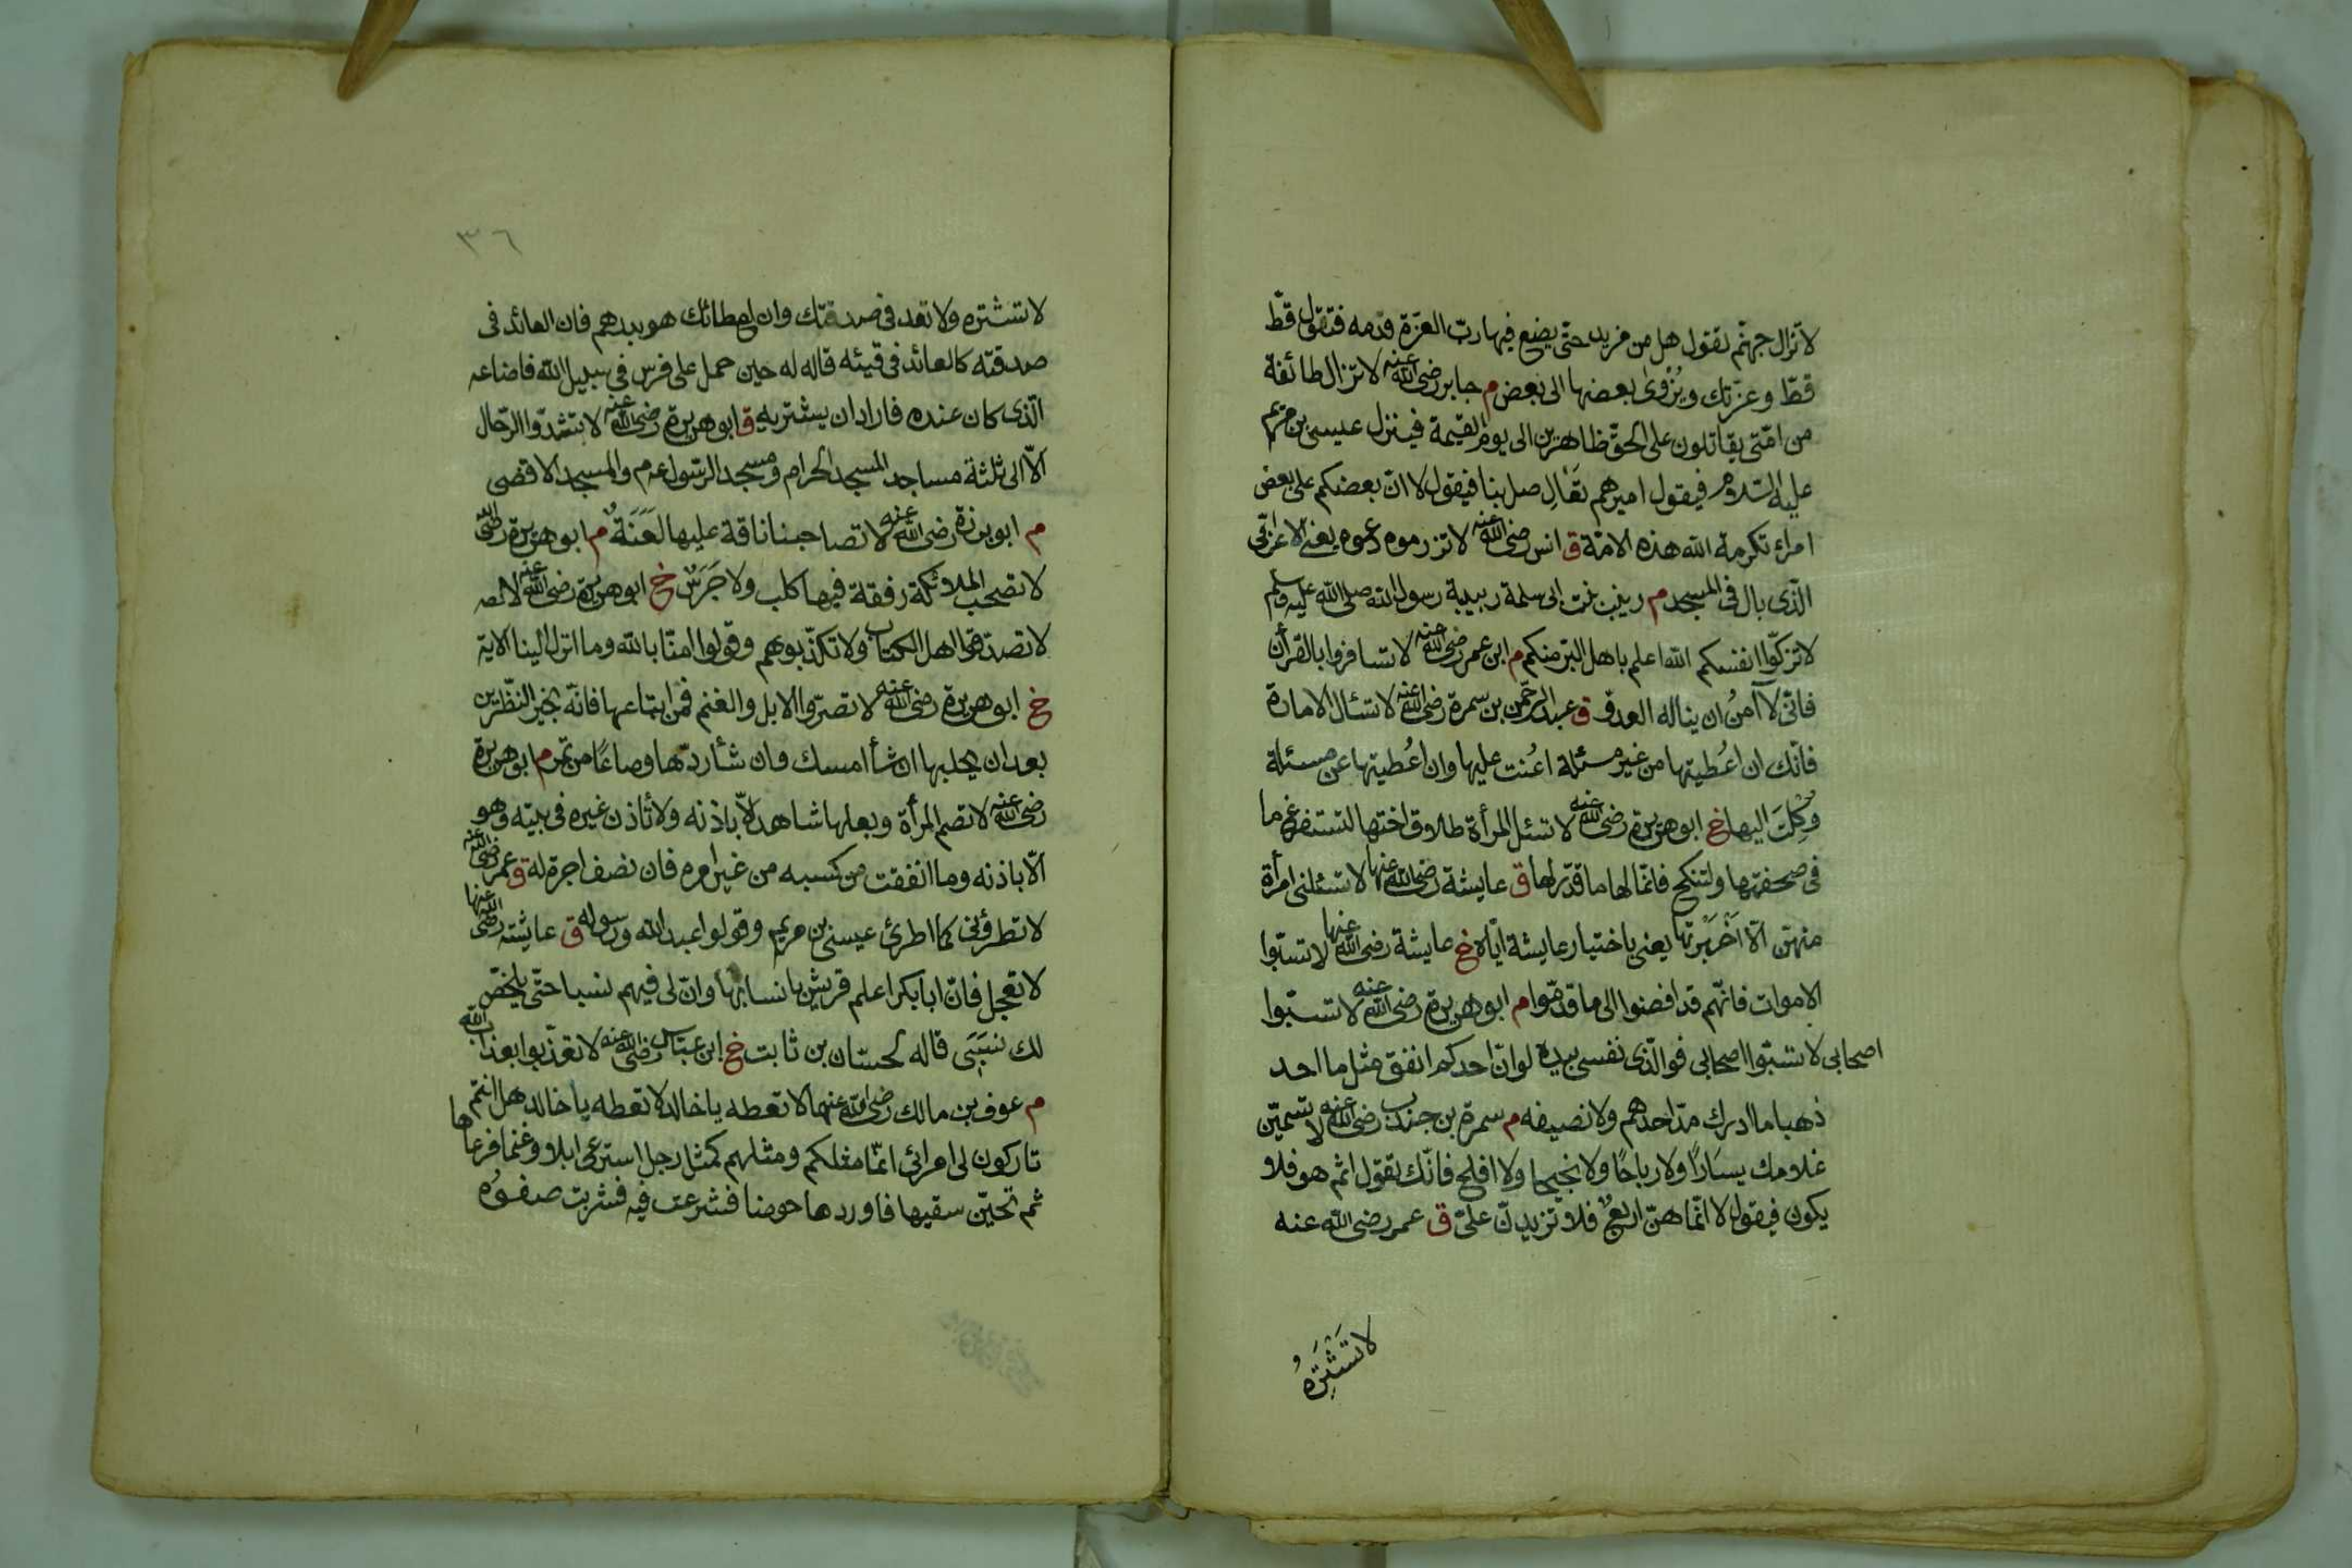 لا تزال جهنّم تقول هل من مزيد حتّى يضع فيها ربّ العزّة قدمه فتقول قطّ
قطّ وعزّتك ويُزْوىٰ بعضها الى بعض م جابر رضى الله عنه لا تزال طائفة
من امّتى يقاتلون على الحقّ ظاهرين الى يوم القيمة فينزل عيسى بن مريم
عليه السّلام فيقول اميرهم تَعَالِ صل بنا فيقول لا انّ بعضكم على بعض
امراء تكرمة الله هذه الامّة ق انس رضى الله عنه لا تزرموه دعوه يعنى الاعرابّى
الّذى بال فى المسجد م زينب بنت ابى سلمة ربيبة رسول الله صلى الله عليه وسلم
لا تزكّوا انفسكم الله اعلم باهل البرّ منكم م ابن عمر رضى الله عنه لا تسافروا بالقرأن
فانّى لا آمنُ ان يناله العدوّ ق عبد الرحمن بن سمرة رضى الله عنه لا تسئال الامارة
فانّك ان اُعطيتها من غير مسئلة اُعنت عليها وان اُعطيتها عن مسئلة
وُكِلْتَ اليها خ ابو هريرة رضى الله عنه لا تسئل المرأة طلاق اختها لتستفرغ ما
فى صحفتها ولتنكح فانّما لها ما قدّر لها ق عايشة رضى الله عنها لا تسئلنى امرأة
منهنّ الّا اَخْبَرْتها يعنى باختيار عايشة ايّاه خ عايشة رضى الله عنها لا تسبّوا
الاموات فانّهم قد افضوا الى ما قدّموا م ابو هريرة رضى الله عنه لا تسبّوا
اصحابى لا تسبّوا اصحابى فوالّذى نفسى بيده لو انّ احدكم انفق مثل ما احد
ذهبا ما ادرك مدّ احدهم ولا نصيفه م سمرة بن جندب رضى الله عنه لا تسمّينّ
غلامك يسَارًا ولا رباحًا ولا نجيحا ولا افلح فانّك تقول اثم هو فلا
يكون فيقول لا انّما هنّ اربعٌ فلا تزيدنّ علىّ ق عمر رضى الله عنه
لا تَشْتَرِهُ
٣٦
لا تشتره ولا تعد فى صدقتك وان اعطائك هو بدرهم فان العائد فى
صدقته كالعائد فى قيئه قاله له حين حمل على فرس فى سبيل الله فاضاعه
الّذى كان عنده فاراد ان يشتريه ق ابو هريرة رضى الله عنه لا تشدّوا الرّحال
الّا الى ثلثة مساجد المسجد الحرام ومسجد الرّسول عم والمسجد الاقصى
م ابو برزة رضى الله عنه لا تصاحبنا ناقة عليها لَعَنَةٌ م ابو هريرة رضى الله
لا تصحب الملائكة رفقة فيها كلب ولا جَرَسٌ خ ابو هريرة رضى الله عنه لا تصد
لا تصدّقوا اهل الكتاب ولا تكذّبوهم وقولوا امنّا بالله وما انزل الينا الاية
خ ابو هريرة رضى الله عنه لا تصرّوا الابل والغنم فمن ابتاعها فانّه بخير النّظرين
بعد ان يحلبها ان شأ امسك وان شأ ردّها وصاعًا من تمر م ابو هريرة
رضى الله عنه لا تصم المرأة وبعلها شاهد الّا باذنه ولا تأذن غيره فى بيته وهو
الّا باذنه وما انفقت من كسبه من غير امره فان نصف اجره له ق عمر رضى الله عنه
لا تطرؤنى كما اطرئ عيسى بن مريم وقولوا عبد الله ورسوله ق عايشة رضى الله عنها
لا تعجل فانّ ابا بكر اعلم قريش بانسابها وانّ لى فيهم نسبا حتّى يلخّص
لك نسَبَى قاله لحسّان بن ثابت خ ابن عبّاس رضى الله عنه لا تعذّبوا بعذاب الله
م عوف بن مالك رضى الله عنهما لا تعطه يا خالد لا تعطه يا خالد هل انتم
تاركون لى امرائى انّما مثلكم ومثلهم كمثل رجل استرعى ابلا وغنما فرعاها
ثم تحيّن سقيها فاوردها حوضا فشرعت فيه فشربت صفوُه